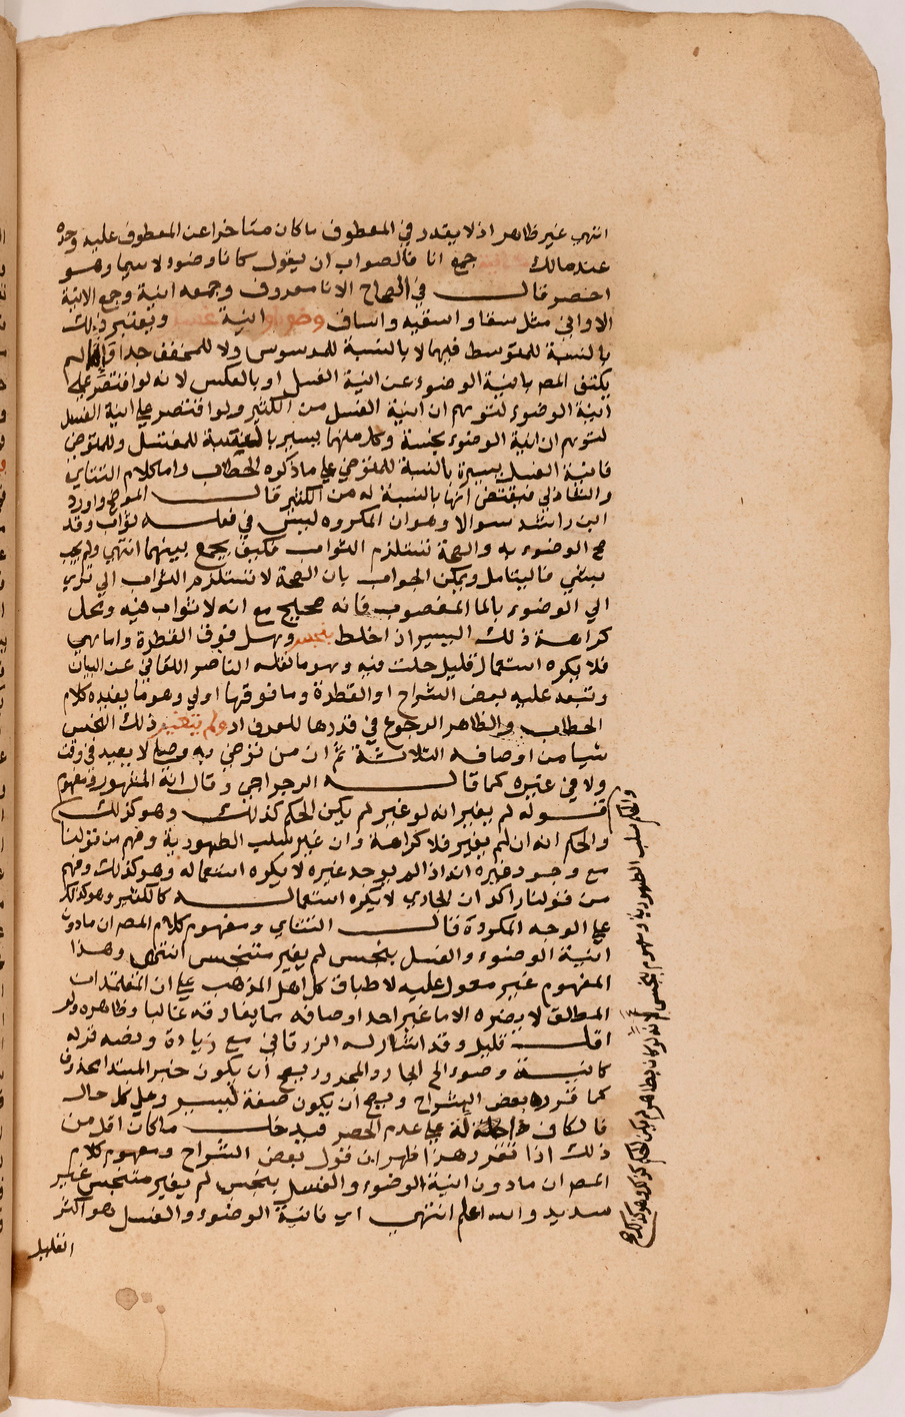 انتهى غير ظاهر اذ لا يقدر في المعطوف ما كان متاخرا عن المعطوف عليه وحده
عند مالك جمع انا فالصواب ان يقول كانا وضوء لا سيما وهو
اخصر قال في الصحاح الانا معروف وجمعه انية وجمع الانية
الاواني مثل سقا واسقيه واساق وضوء او انية غسل ويعتبر ذلك
بالنسبة للمتوسط فيهما لا بالنسبة للموسوس ولا للمخفف جدا لم
يكتف المص بانية الوضوء عن انية الغسل او بالعكس لانه لو اقتصر على
انية الوضوء لتوهم ان انية الغسل من الكثير ولو اقتصر على انية الغسل
لتوهم ان انية الوضوء نجسة وكل منهما يسير بالنسبة للمغتسل وللمتوضي
فانية الغسل يسيرة بالنسبة للمتوضي على ما ذكره الحطاب واما كلام التتاي
فيقتضي انها بالنسبة له من الكثير قال واورد
ابن راشد سوالا وهو ان المكروه ليس في فعله ثواب وقد
صح الوضوء به والصحة تستلزم الثواب فكيف يجمع بينهما انتهى ولم يجب
بشي فاليتامل ويمكن الجواب بان الصحة لا تستلزم الثواب الى تري
الي الوضوء بالما المغصوب فانه صحيح مع انه لا ثواب فيه ومحل
كراهة ذلك اليسير ان اختلط بنجس وهل فوق القطرة واما هي
فلا يكره استعمال قليل حلت فيه وهو ما نقله الناصر اللقاني عن البيان
وتبعه عليه بعض الشراح او القطرة وما فوقها اولي وهو ما يفيده كلام
الحطاب والظاهر الرجوع في قدرها للعرف او ولم يتغير ذلك النجس
شيا من اوصافه الثلاثة ثم ان من توضي به وصلى لا يعيد في وقت
ولا في غيره كما قاله الرجراجي وقال انه المشهور ومفهوم
قوله لم يغير انه لو غير لم يكن الحكم كذلك وهو كذلك
والحكم انه ان لم يغير فلا كراهة وان غير سلب الطهورية وفهم من قولنا
مع وجود غيره انه اذا لم يوجد غيره لا يكره استعماله وهو كذلك وفهم
من قولنا راكد ان الجاري لا يكره استعماله كالكثير وهو كذلك
على الوجه المكروه قال التتاي ومفهوم كلام المص ان ما دون
انية الوضوء والغسل بنجس لم يغير متنجس انتهى وهذا
المفهوم غير معول عليه لاطباق كل اهل المذهب على ان المعتمد ان
المطلق لا يضره الا ما غير احد اوصافه مما يفارقه غالبا وظاهره ولو
اقل قليل وقد اشار له الزرقاني مع زيادة ونصه قوله
كانية وضوء الخ الجار والمجرور يصح ان يكون خبر المبتدا محذوف
كما قرره بعض الشراح ويصح ان يكون صفة ليسير وعلى كل حال
فالكاف على عدم الحصر فيدخل ما كان اقل من
ذلك اذا تقرر هذا ظهر ان قول بعض الشراح ومفهوم كلام
المص ان ما دون انية الوضوء والغسل بنجس لم يغير متنجس غير
سديد والله اعلم انتهى اي فانية الوضوء والغسل هو اكثر
القليل
والحكم سلب الطهورية ومفهوم بنجس انه لو كان بطاهر لم يكن الحكم كذلك وهو كذلك